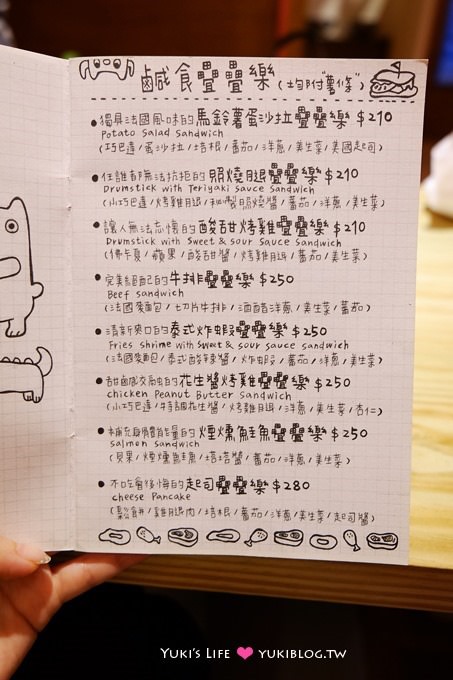 鹹食疊疊樂(均附"薯條")
獨具法國風味的馬鈴薯蛋沙拉疊疊樂 $210
Potato Salad Sandwich
(巧巴達/蛋沙拉/培根/番茄/洋蔥/美生菜/美國起司)
任誰都無法抗拒的照燒腿疊疊樂 $210
Drumstick with Teriyaki Sauce Sandwich
(小巧巴達/烤雞腿/和製照燒醬/番茄/洋蔥/美生菜)
讓人無法忘懷的酸甜烤雞疊疊樂 $210
Drumstick with Sweet & sour Sauce Sandwich
(佛卡夏/蘋果/酸甜醬/烤雞腿/番茄/美生菜)
完美絕配的牛排疊疊樂 $250
Beef sandwich
(法國麵包/切片牛排/酒醋洋蔥/美生菜/番茄)
清新爽口的泰式炸蝦疊疊樂 $250
Fries shrime with sweet & sour sauce sandwich
(法國麵包/泰式酸辣醬/炸蝦/番茄/洋蔥/美生菜)
甜鹹交融的花生醬烤雞疊疊樂 $250
chicken Peanut Butter Sandwich
(小巧巴達/特調花生醬/烤雞腿/洋蔥/美生菜/杏仁)
補充身體能量的煙燻鮭魚疊疊樂 $250
Salmon Sandwich
(貝果/煙燻鮭魚/塔塔醬/番茄/洋蔥/美生菜)
不吃會後悔的起司疊疊樂 $280
cheese Pancake
(鬆餅/雞腿肉/培根/番茄/洋蔥/美生菜/起司醬)
Yuki's Life yukiblog.tw